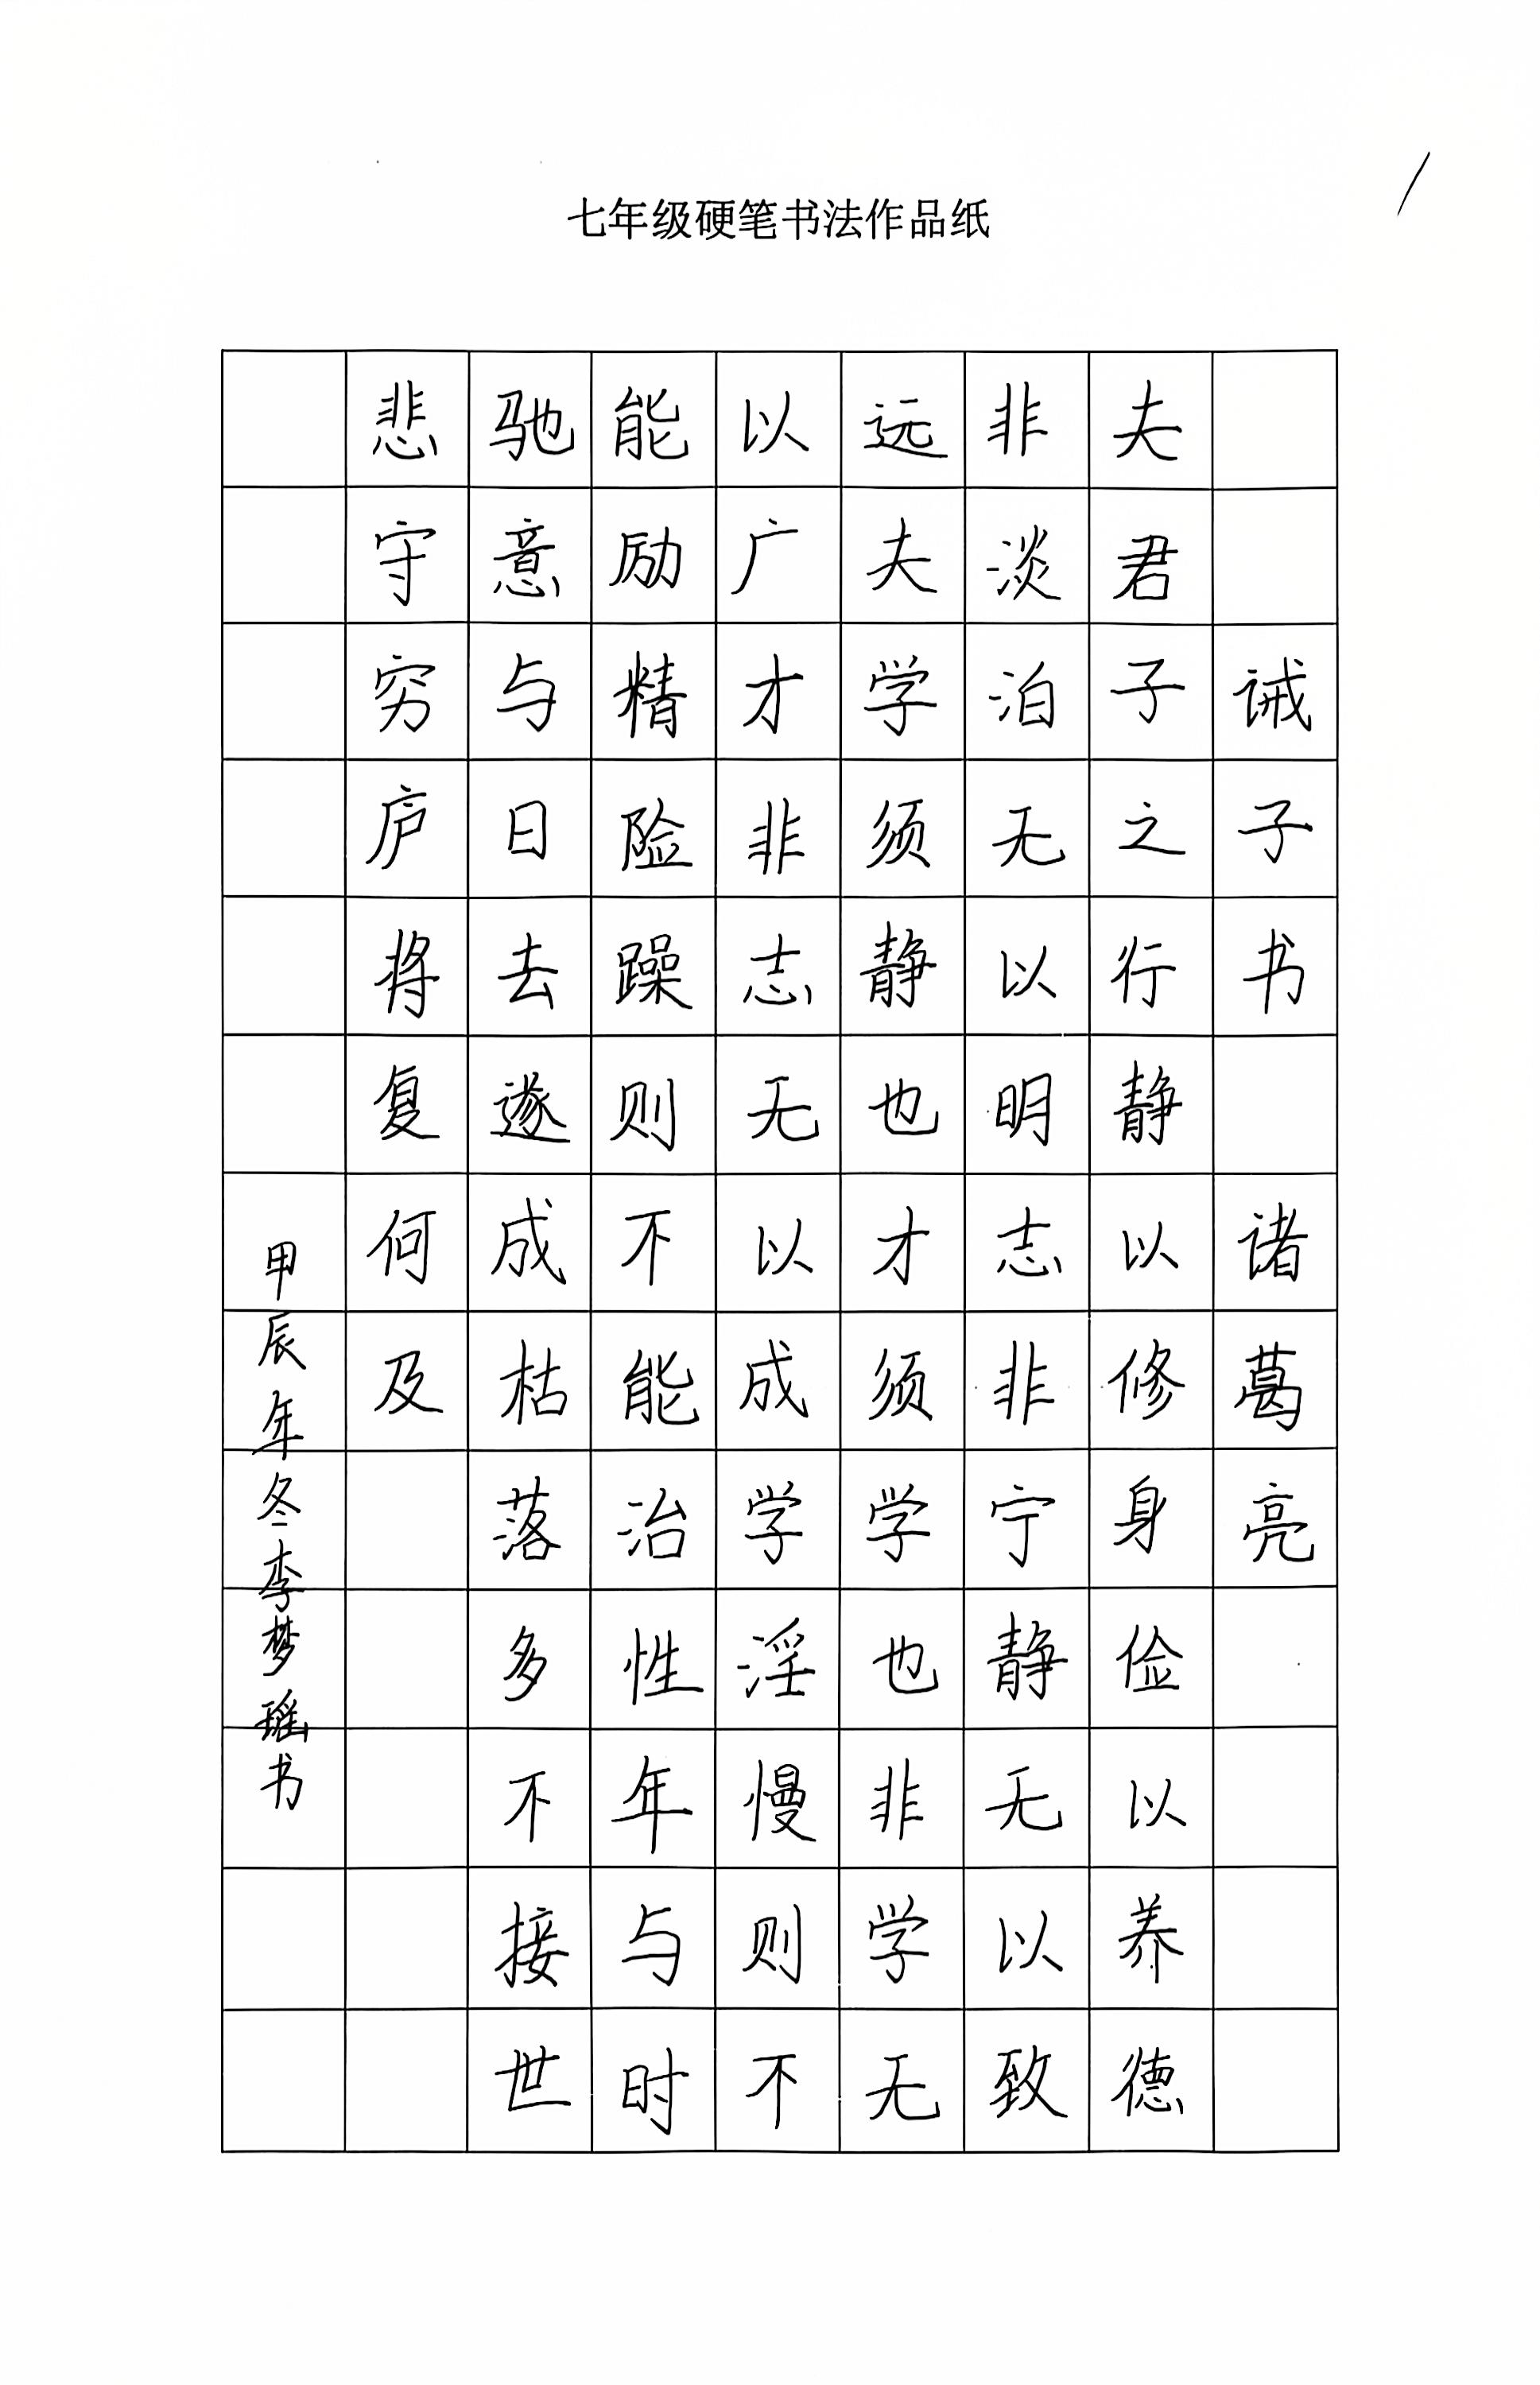 七年级硬笔书法作品纸
诫子书 诸葛亮
夫君子之行静以修身俭以养德
非淡泊无以明志非宁静无以致
远夫学须静也才须学也非学无
以广才非志无以成学淫慢则不
能励精险躁则不能治性年与时
驰意与日去遂成枯落多不接世
悲守穷庐将复何及
甲辰年冬李梦瑶书